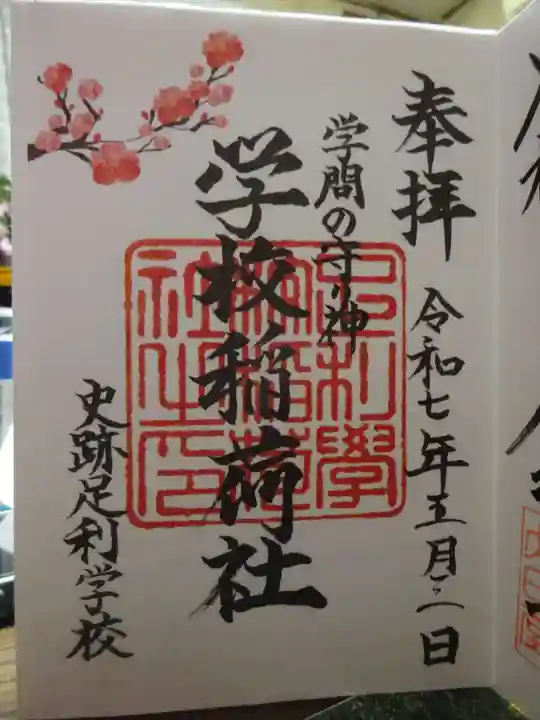 奉拝
令和七年五月二日
学問の守り神
学校稲荷社
史跡足利学校
足利學
校稲荷
社之印